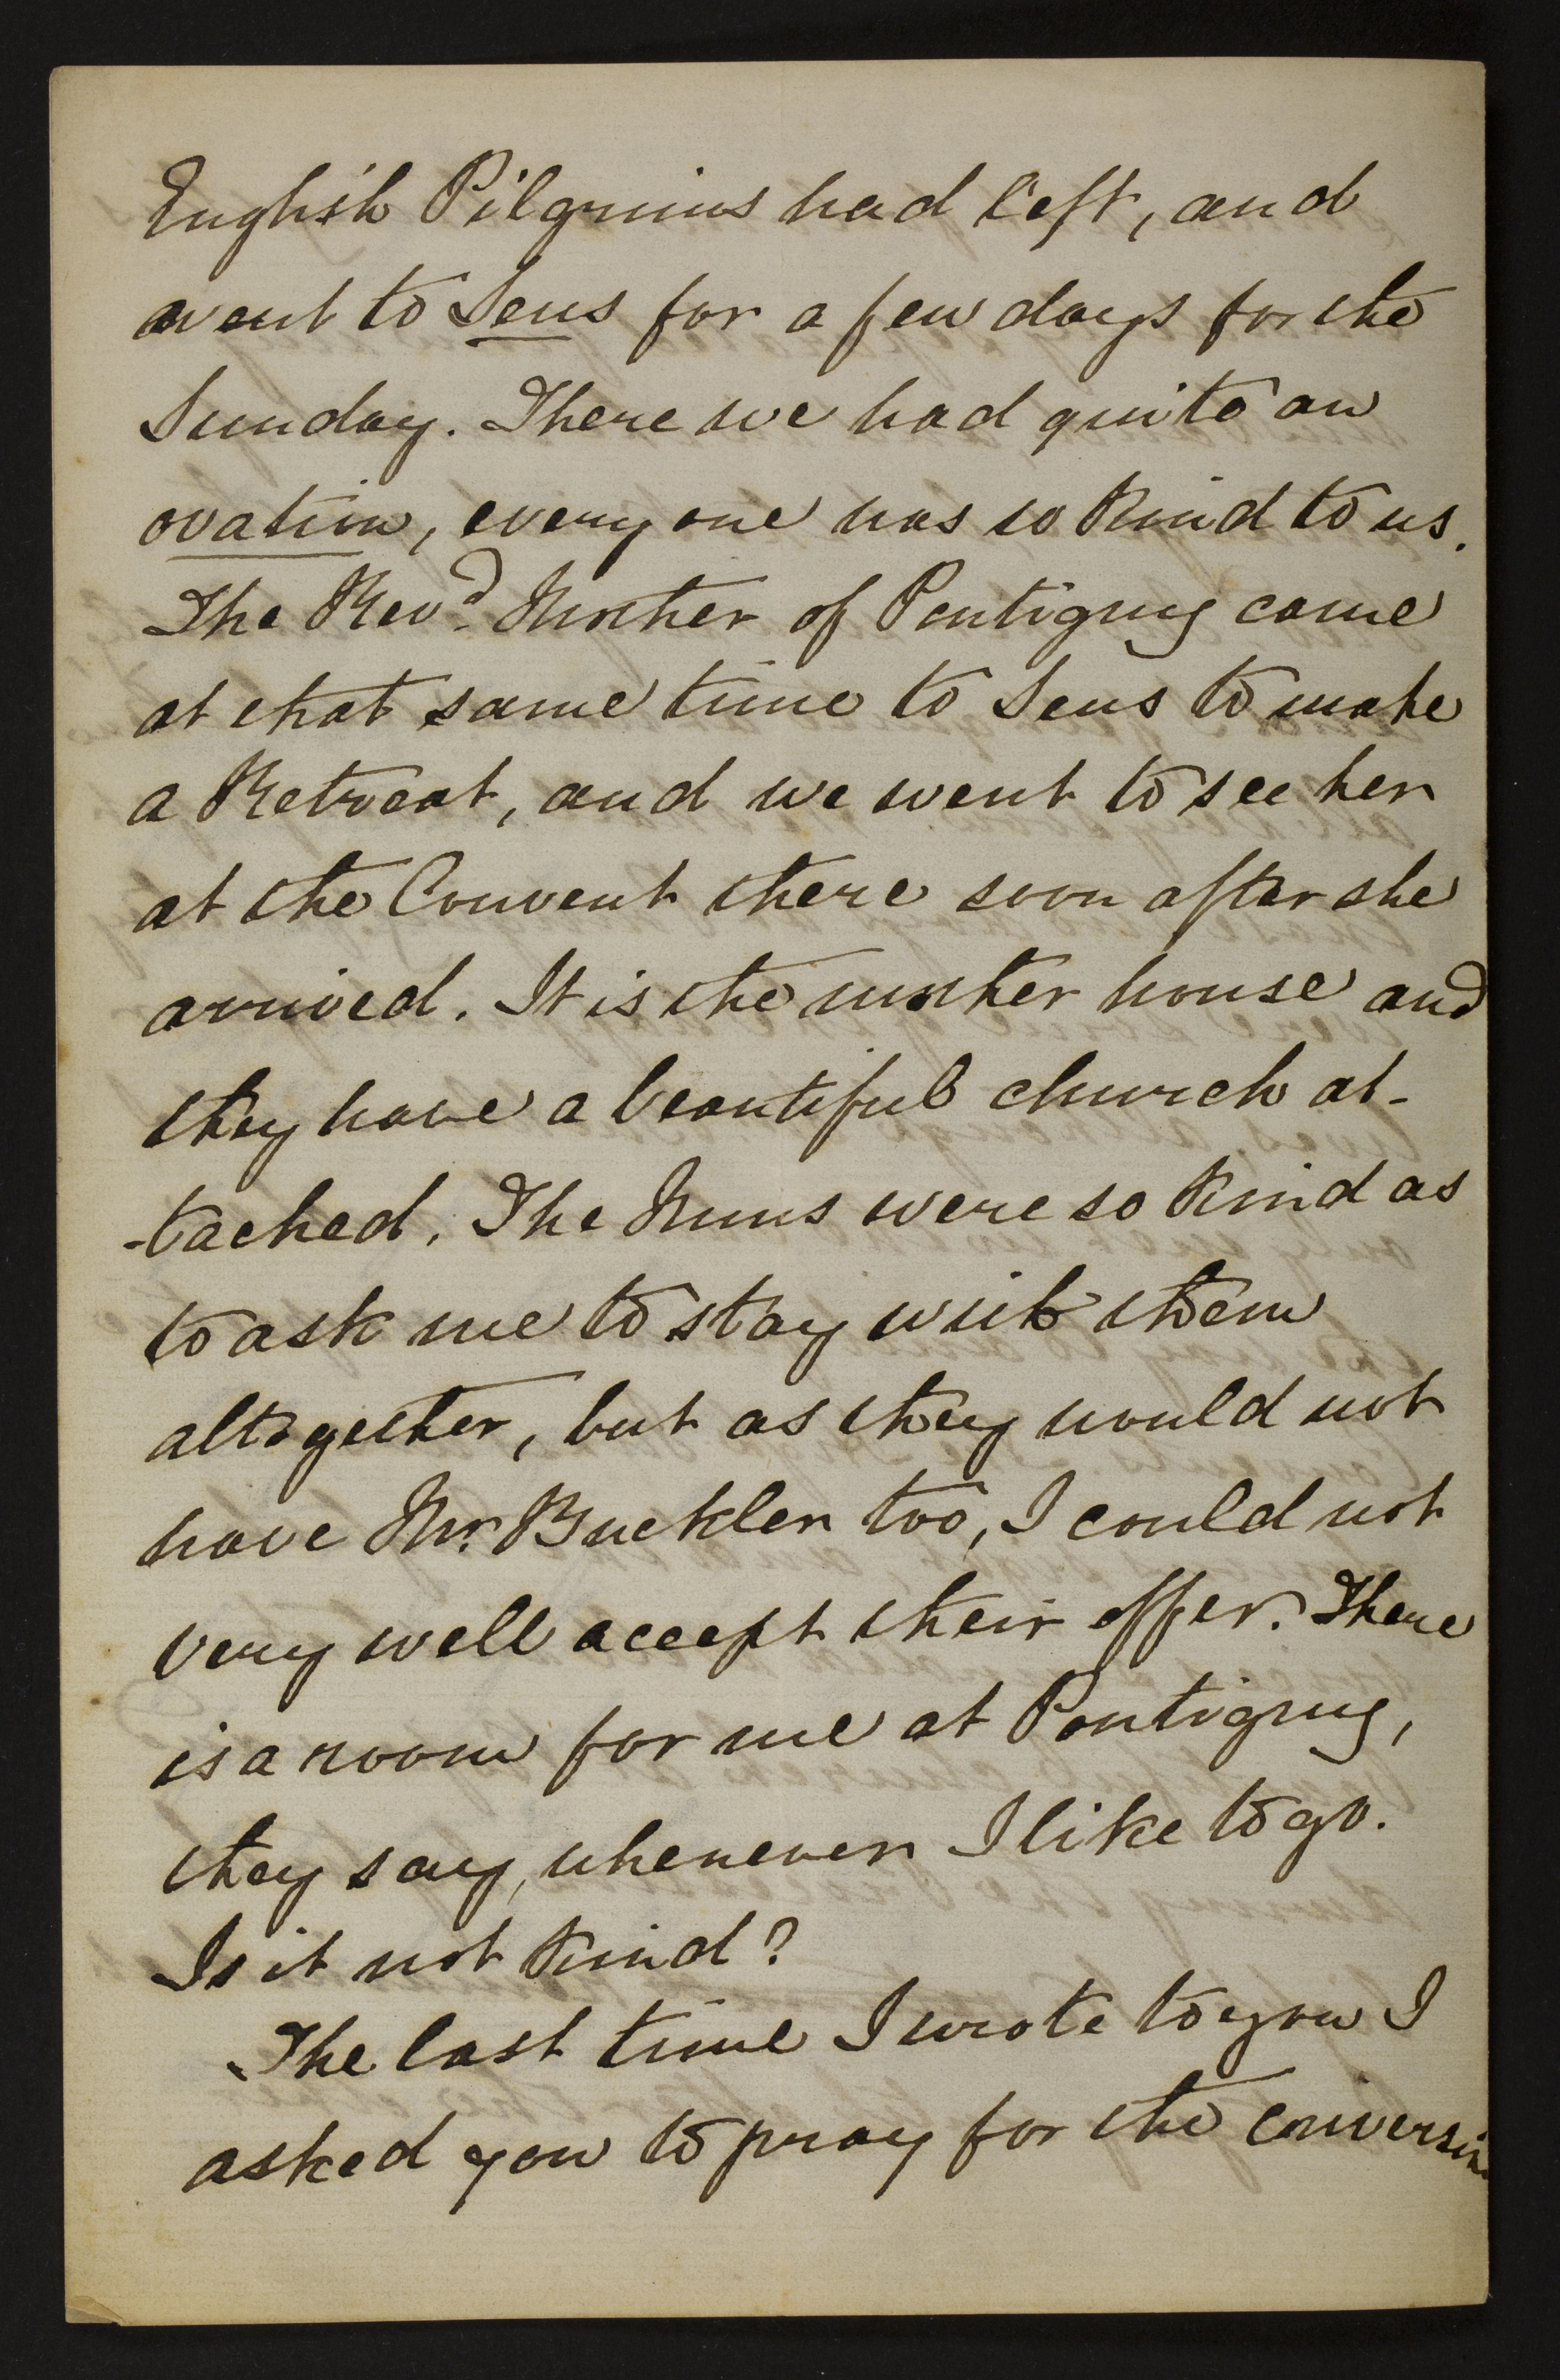 English Pilgrims had left, and
went to Sens for a few days for the
Sunday. There we had quite an
ovation, every one was so kind to us.
The Revd. Mother of Pontigny came
at that same time to Sens to make
a Retreat, and we went to see her
at the Convent there soon after she
arrived. It is the mother house and
they have a beautiful church at-
-tached. The Nuns were so kind as
to ask me to stay with them
altogether, but as they would not
have Mr. Buckler too, I could not
very well accept their offer. There
is a room for me at Pontigny,
they say, whenever I like to go.
Is it not kind?
The last time I wrote to you I
asked you to pray for the conversion